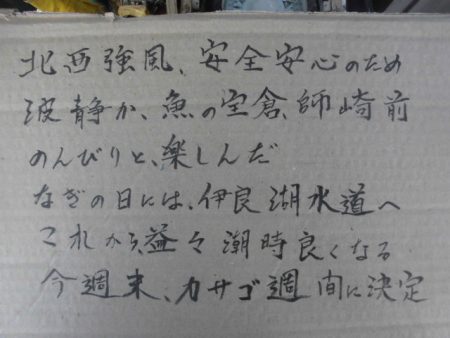 北西強風、安全安心のため
波静か、魚の宝倉、師崎前
のんびりと、楽しんだ
なぎの日には、伊良湖水道へ
これから益々潮時良くなる
今週末、カサゴ週間に決定